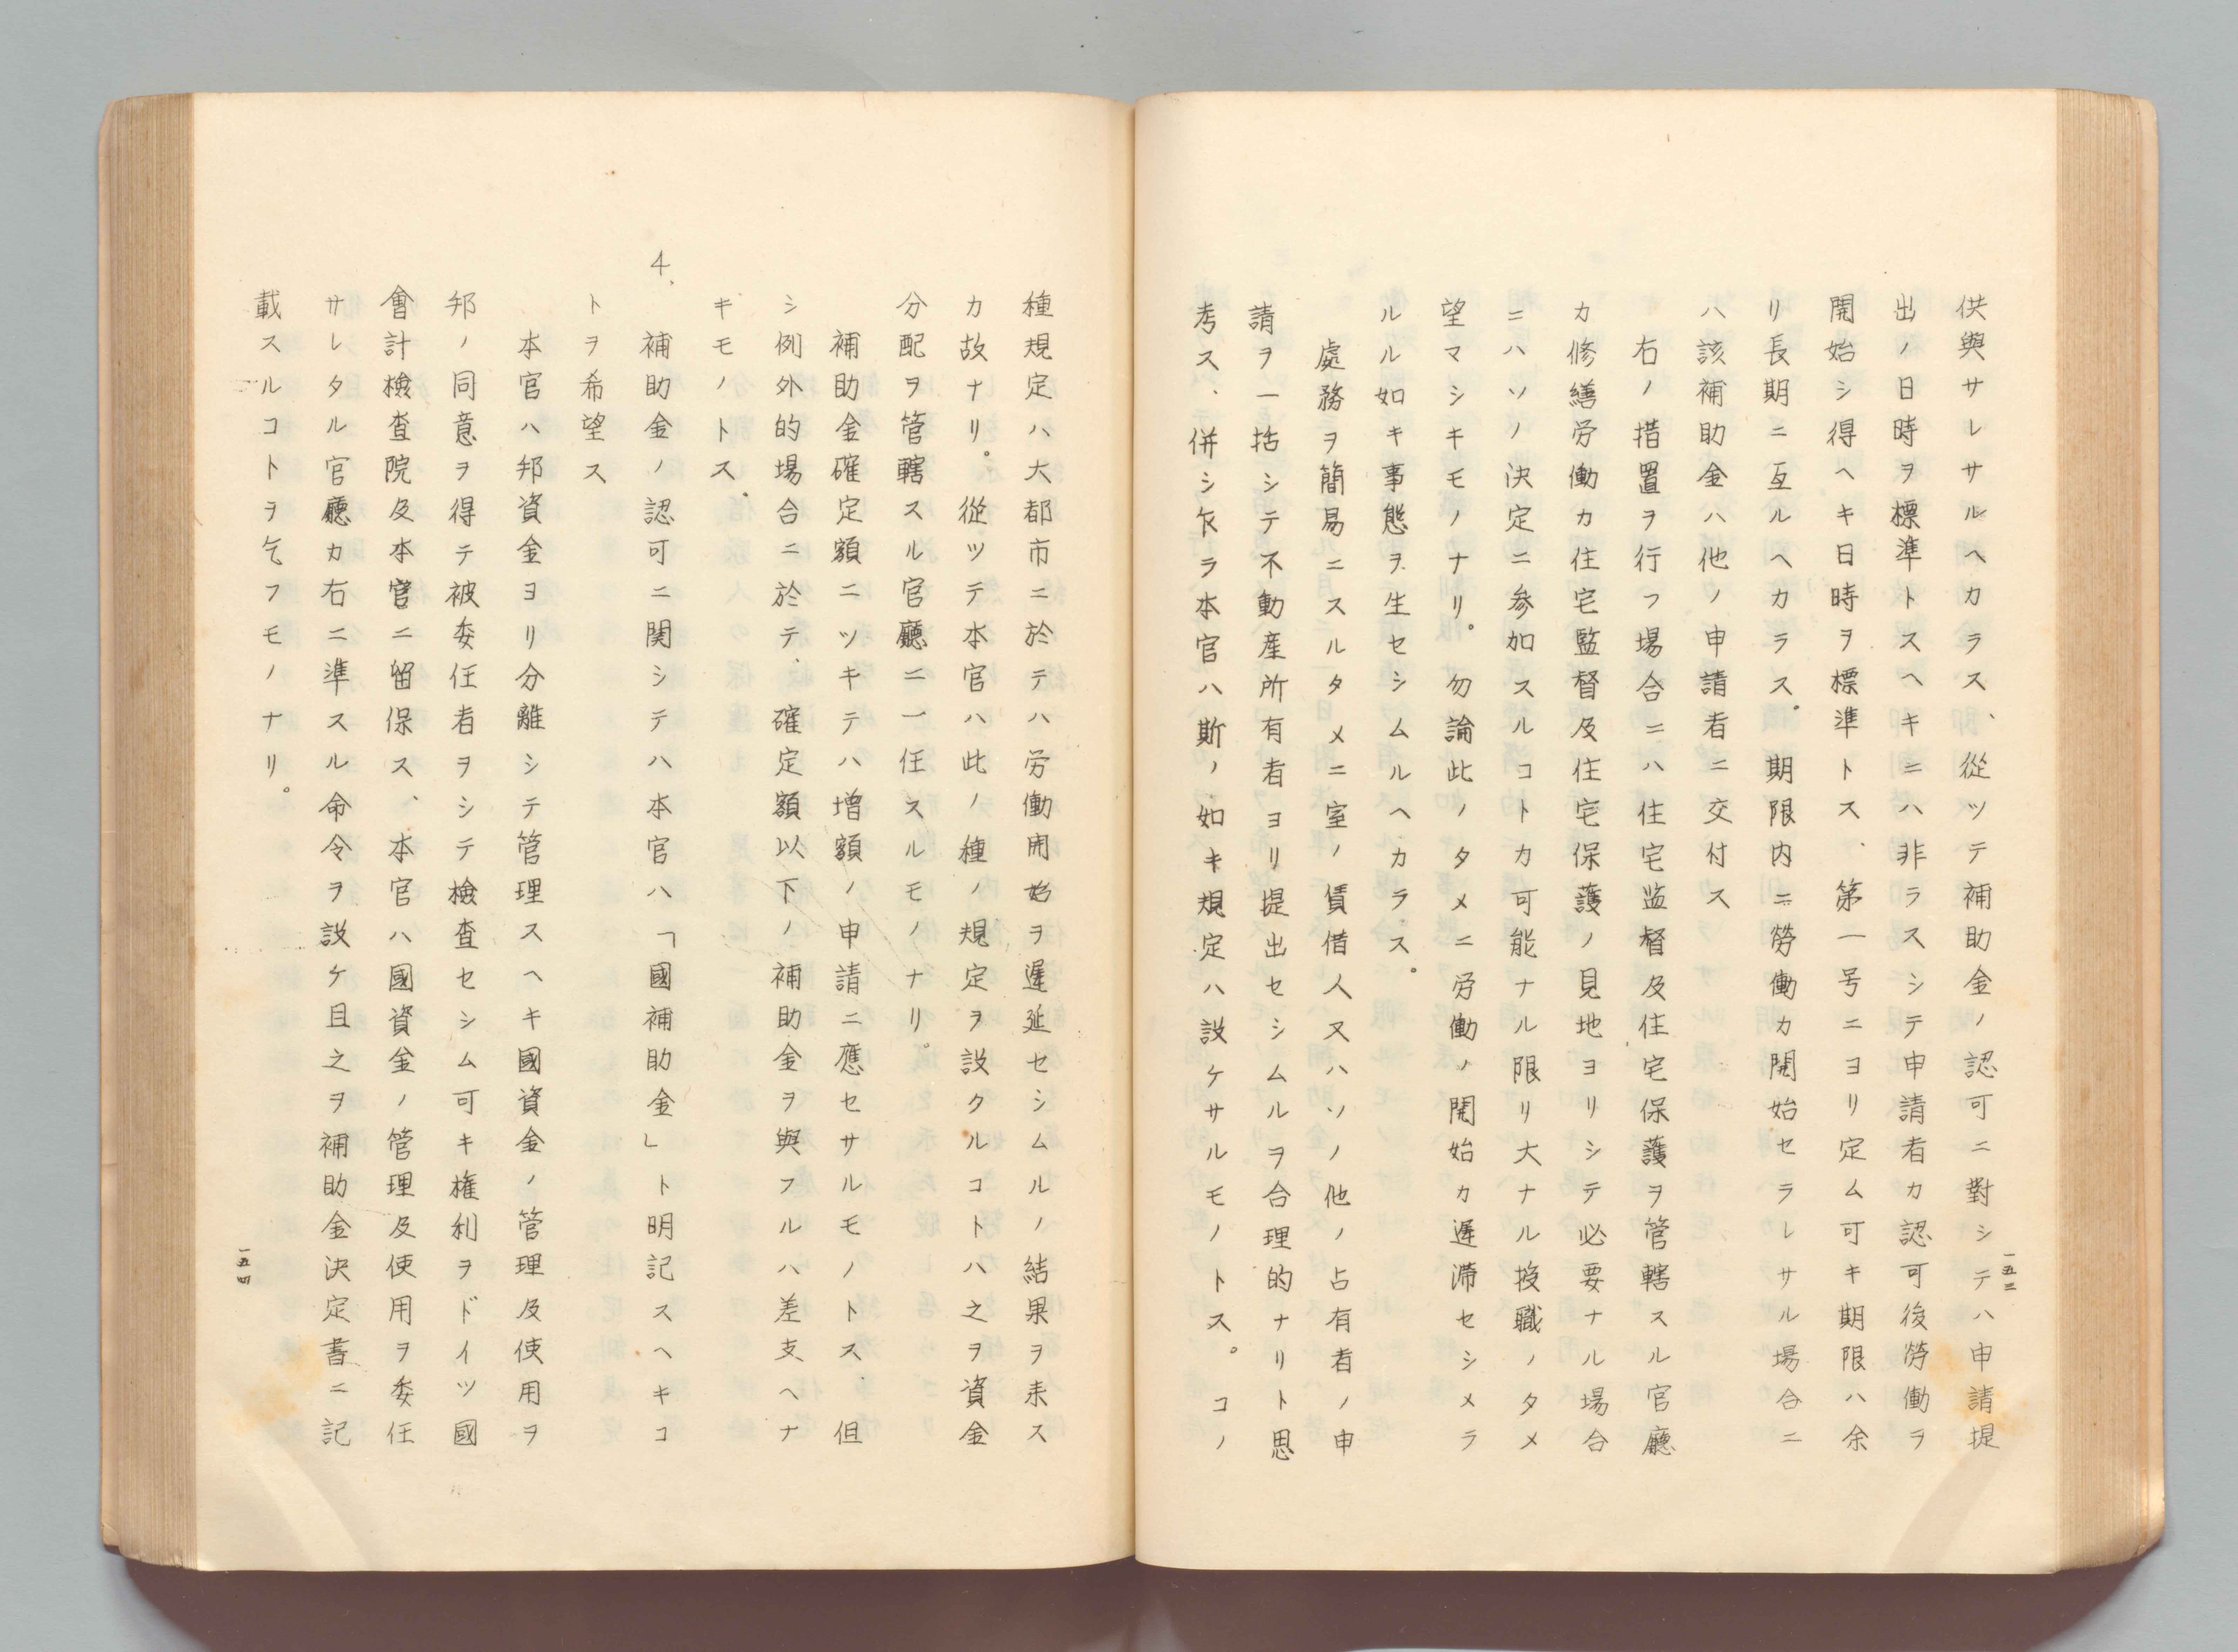 供與サレサルヘカラス、從ツテ補助金ノ認可ニ對シテハ申請提
出ノ日時ヲ標準トスヘキニハ非ラスシテ申請者カ認可後勞働ヲ
開始シ得ヘキ日時ヲ標準トス、第一号ニヨリ定ム可キ期限ハ余
リ長期ニ亙ルヘカラス。期限内ニ勞働カ開始セラレサル場合ニ
ハ該補助金ハ他ノ申請者ニ交付ス
右ノ措置ヲ行フ場合ニハ住宅監督及住宅保護ヲ管轄スル官廳
カ修繕労働カ住宅監督及住宅保護ノ見地ヨリシテ必要ナル場合
ニハソノ決定ニ参加スルコトカ可能ナル限リ大ナル授職ノタメ
望マシキモノナリ。勿論此ノタメニ労働ノ開始カ遅滞セシメラ
ルル如キ事態ヲ生セシムルヘカラス。
處務ヲ簡易ニスルタメニ室ノ賃借人又ハソノ他ノ占有者ノ申
請ヲ一括シテ不動産所有者ヨリ提出セシムルヲ合理的ナリト思
考ス、併シ乍ラ本官ハ斯ノ如キ規定ハ設ケサルモノトス。コノ
一五三
種規定ハ大都市ニ於テハ労働開始ヲ遅延セシムルノ結果ヲ来ス
カ故ナリ。從ツテ本官ハ此ノ種ノ規定ヲ設クルコトハ之ヲ資金
分配ヲ管轄スル官廳ニ一任スルモノナリ。
補助金確定額ニツキテハ増額ノ申請ニ應セサルモノトス、但
シ例外的場合ニ於テ、確定額以下ノ補助金ヲ與フルハ差支ヘナ
キモノトス。
4、補助金ノ認可ニ関シテハ本官ハ「國補助金」ト明記スヘキコ
トヲ希望ス
本官ハ邦資金ヨリ分離シテ管理スヘキ國資金ノ管理及使用ヲ
邦ノ同意ヲ得テ被委任者ヲシテ檢査セシム可キ権利ヲドイツ國
會計檢査院及本官ニ留保ス、本官ハ國資金ノ管理及使用ヲ委任
サレタル官廳カ右ニ準スル命令ヲ設ケ且之ヲ補助金決定書ニ記
載スルコトヲ乞フモノナリ。
一五四